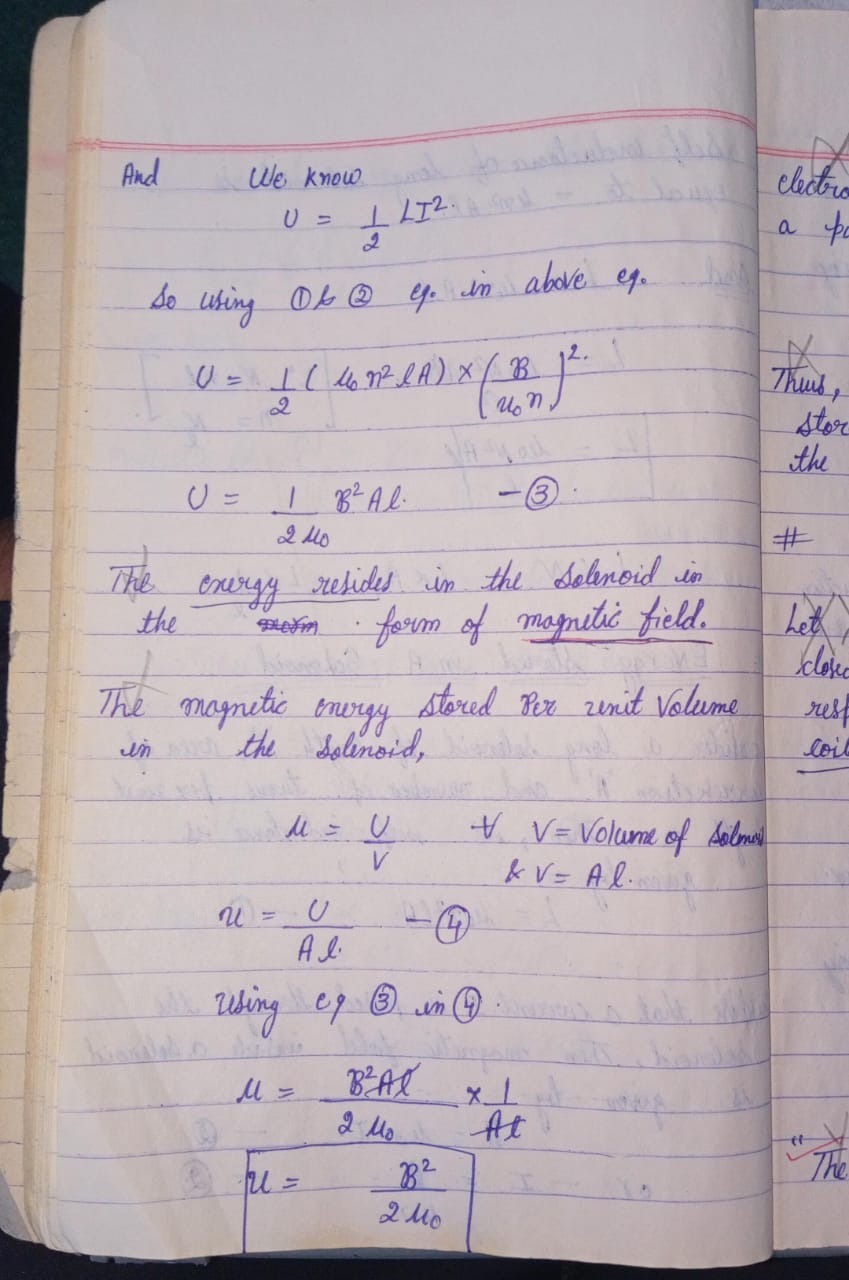 And We know
U = 1/2 LI².
So using ① & ② eq. in above eq.
U = 1/2 ( μ₀ n² l A) × ( B / μ₀ n )².
U = 1 / 2 μ₀ B² A l. – ③.
The energy resides in the Solenoid in
the form of magnetic field.
The magnetic energy stored Per unit Volume
in the Solenoid,
u = U / V ∀ V = Volume of Solenoid
& V = A l.
u = U / A l. – ④
Using eq ③ in ④.
u = B² A l / 2 μ₀ × 1 / A l
u = B² / 2 μ₀
electro
a pa
Thus,
stor
the
#
Let
close
resp
coil
" The